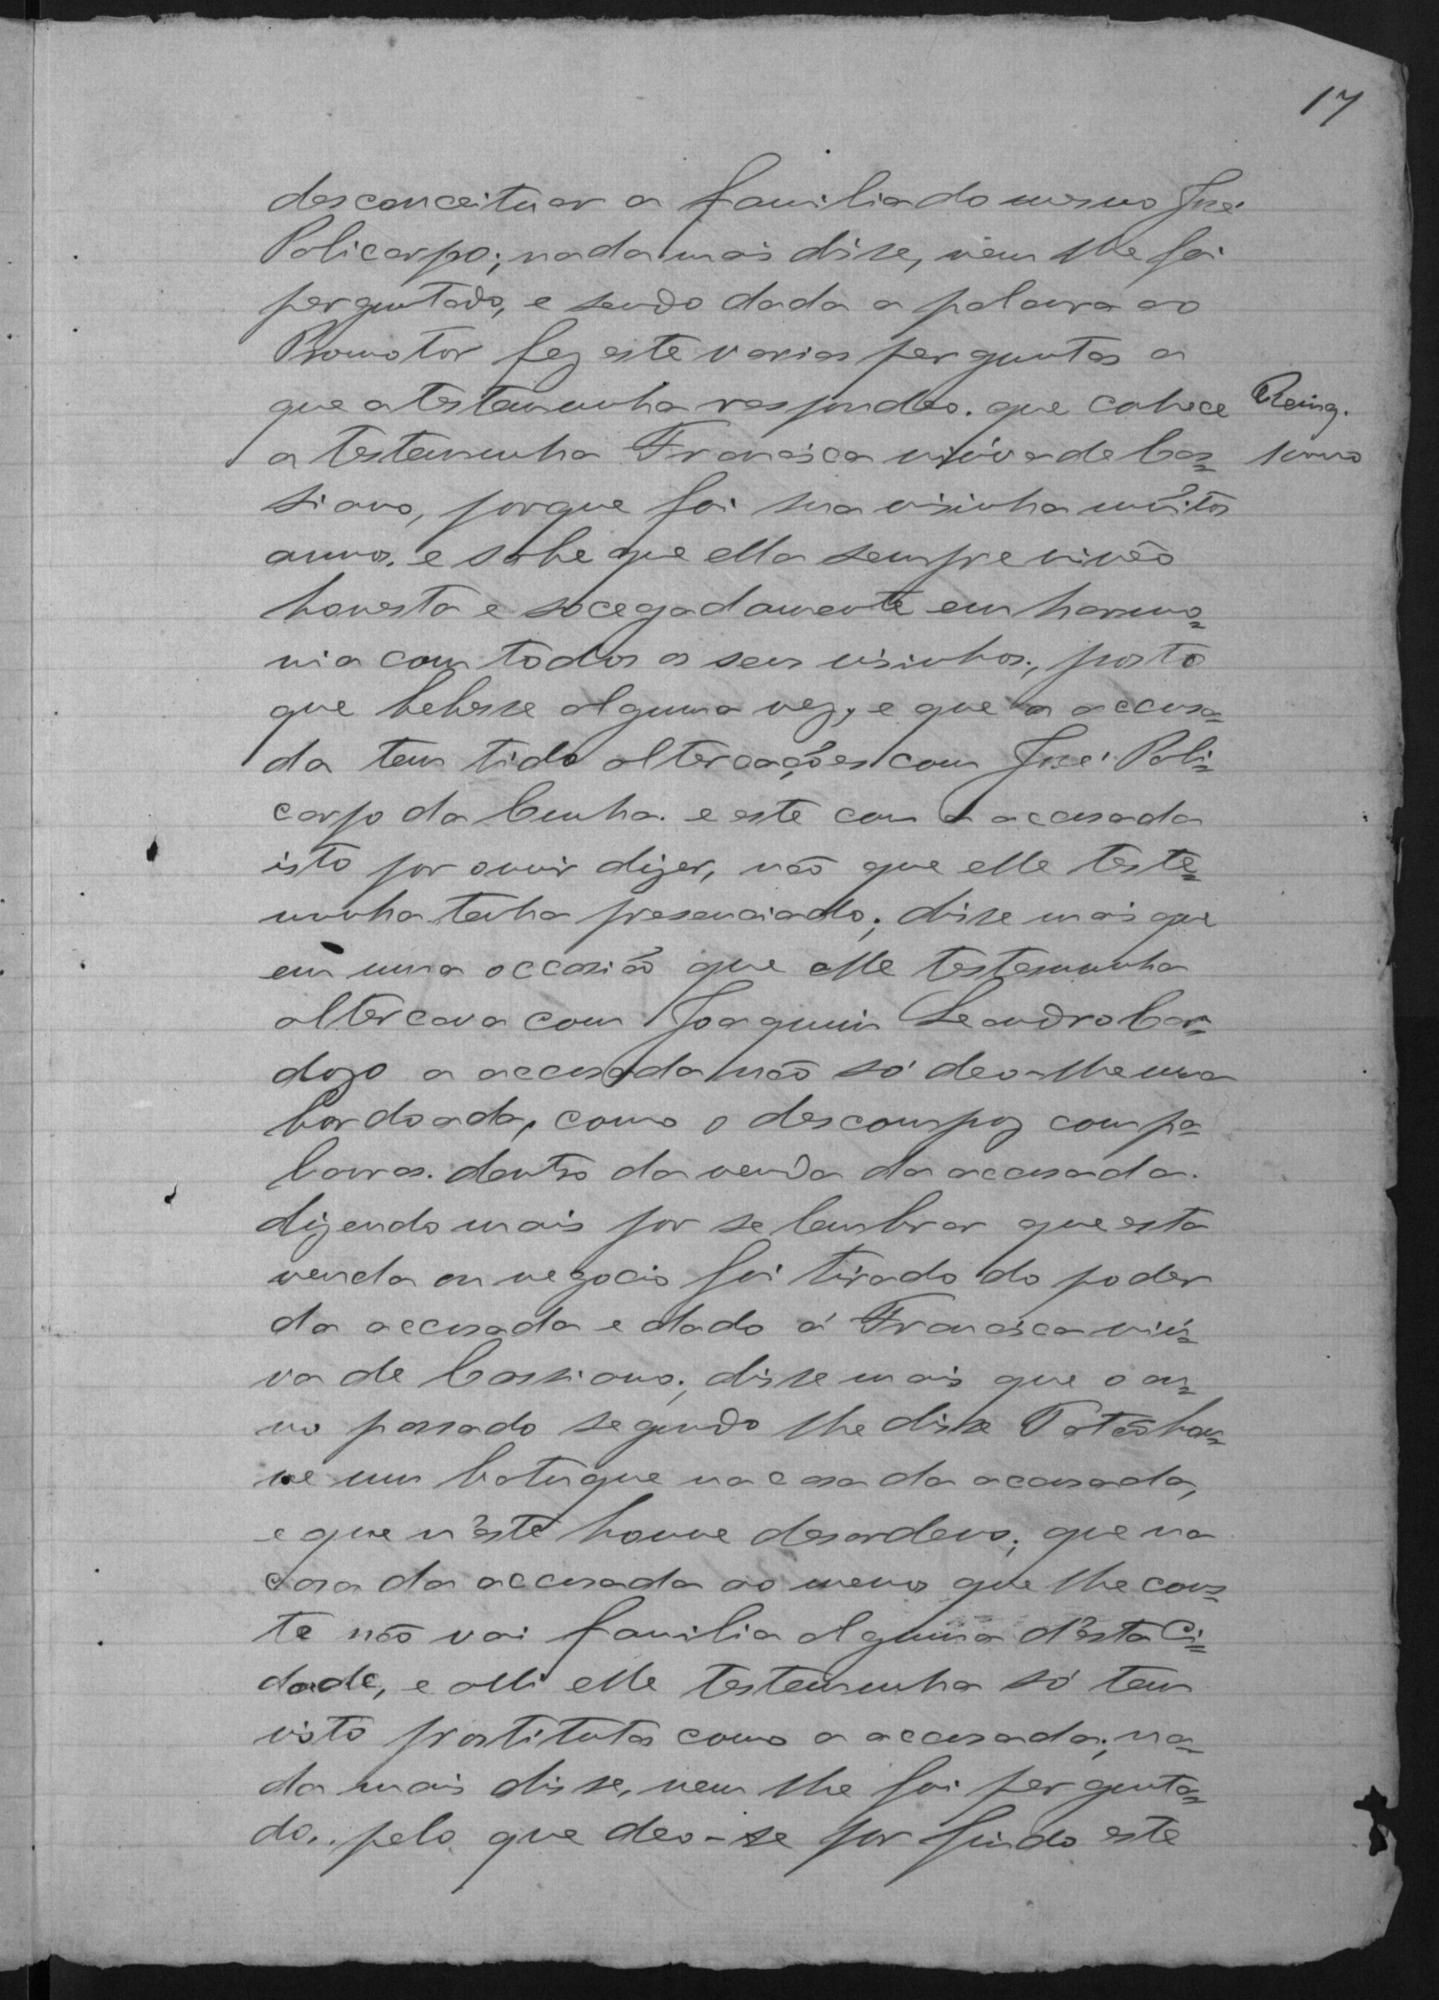 17
desconceituar a familia do mesmo José
Policarpo; nada mais disse, nem lhe foi
perguntado, e sendo dada a palavra ao
Promotor fez este varias perguntas a
que a testemunha respondeo. que cohece
a testemunha Francisca viúva de Cas=
siano, porque foi sua visinha muitos
annos. e sabe que ella sempre vivêo
honesta e socegadamente em harmo=
nia com todos os seus visinhos, posto
que bebesse alguma vez, e que a accusa=
da tem tido altercações com José Poli=
carpo da Cunha. e este com a accusada
isto por ouvir dizer, não que elle teste=
munha tenha presenciado; disse mais que
em uma occasião que elle testemunha
altercava com Joaquim Leandro Car=
dozo a accusada não só deo-lhe uma
bordoada, como o descompoz com pa=
lavras. dentro da venda da accusada.
dizendo mais por se lembrar que esta
venda ou negocio foi tirado do poder
da accusada e dado á Francisca viú=
va de Cassiano; disse mais que o an=
no passado segundo lhe disse hou=
ve um batuque na casa da accusada,
e que n'este houve desordens; que na
casa da accusada ao menos que lhe cons=
te não vai familia alguma d'esta Ci=
dade, e alli elle testemunha só tem
visto prostitutas como a accusada; na=
da mais disse, nem lhe foi pergunta=
do. pelo que deo-se por findo este